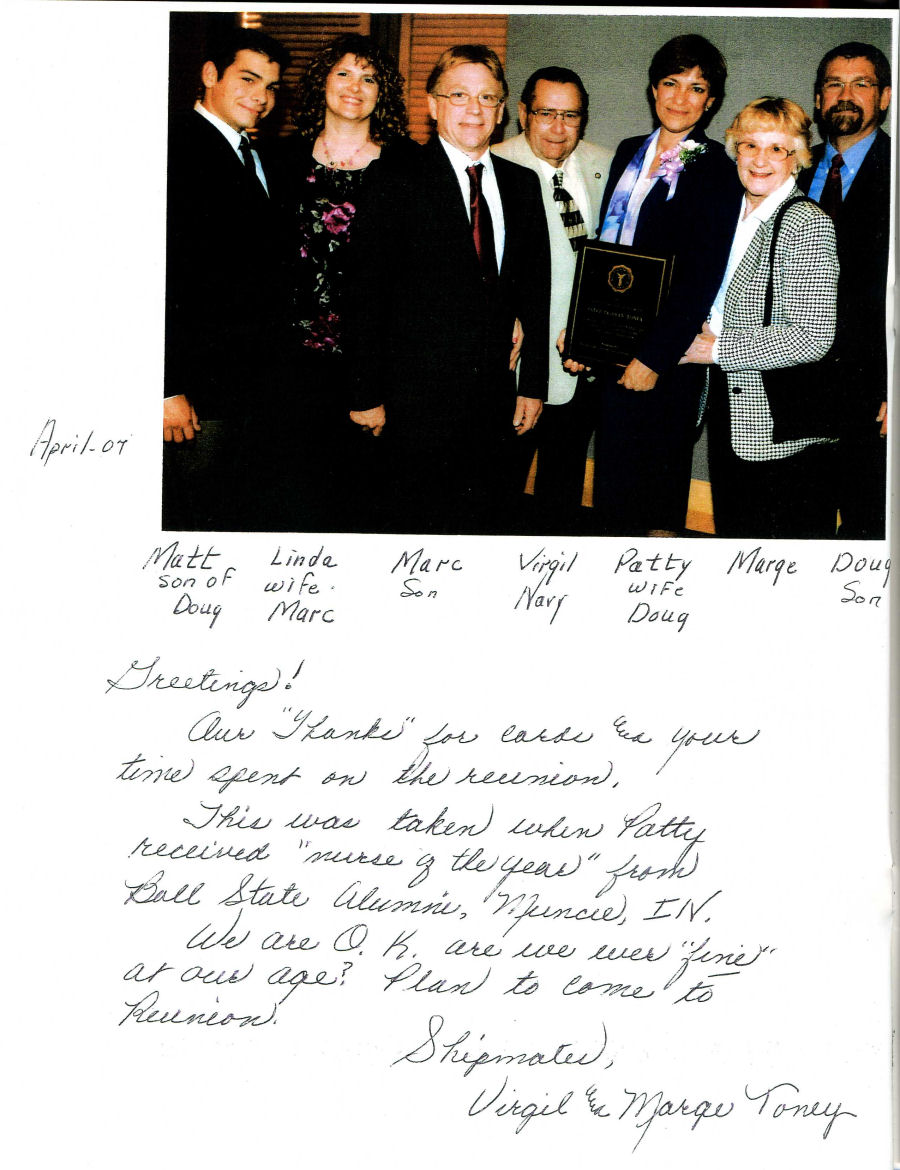 April-07
Matt Linda Marc Virgil Patty Marge Doug
son of wife. Son Navy wife Son
Doug Marc Doug
Greetings!
Our "Thanks" for cards & your
time spent on the reunion.
This was taken when Patty
received "nurse of the year" from
Ball State Alumni, Muncie, IN.
We are O.K. are we ever "fine"
at our age? Plan to come to
Reunion.
Shipmates,
Virgil & Marge Toney